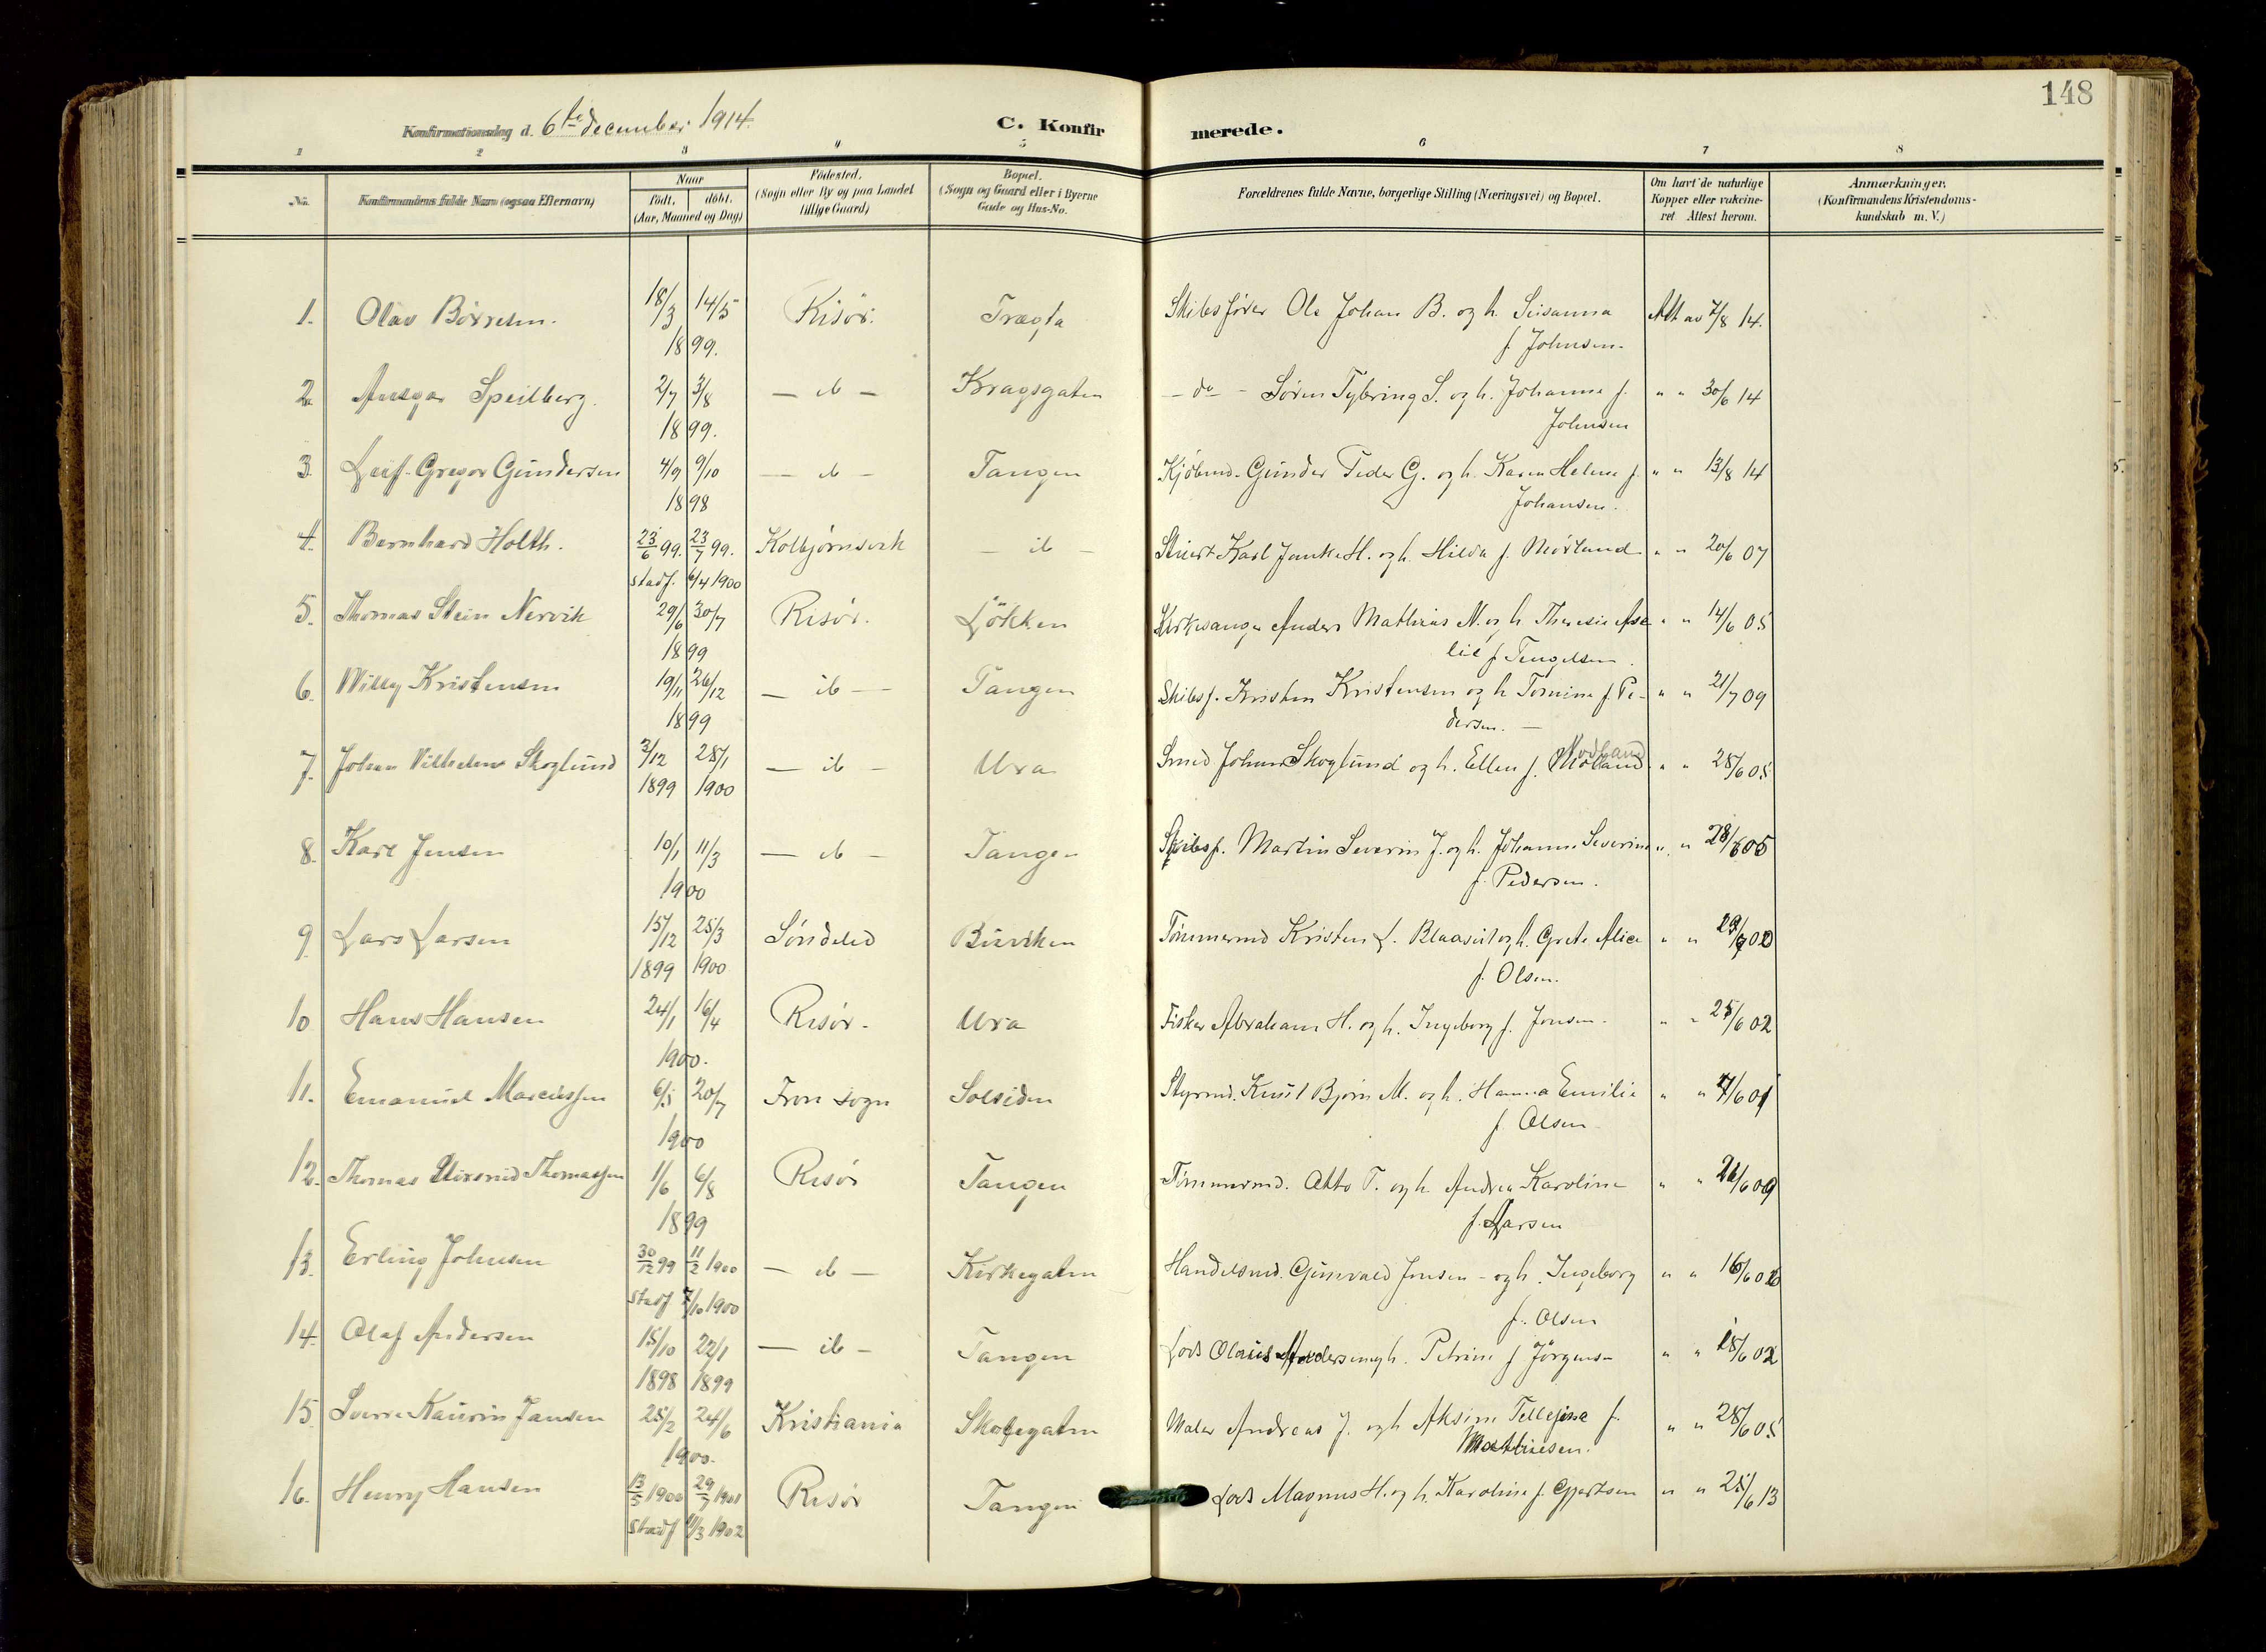 148
Konfirmationsdag d. 6te december 1914.
C. Konfirmerede.
1 2 3 4 5 6 7 8
No.
Konfirmandens fulde Navn (ogsaa Efternavn)
Naar
født, døbt.
(Aar, Maaned og Dag)
Födested,
(Sogn eller By og paa Landet
tillige Gaard)
Bopæl.
(Sogn og Gaard eller i Byerne
Gade og Hus-No.
Forældrenes fulde Navne, borgerlige Stilling (Næringsvei) og Bopæl.
Om havt de naturlige
Kopper eller vakcine-
ret Attest herom.
Anmærkninger.
(Konfirmandens Kristendoms-
kundskab m. V.)
1. Olav Börresen. 18/3 14/5 Risör. Trægta Skibsfører Ole Johan B. og h. Susanna Att av 7/8 14.
1899. f. Johnsen.
2. Ansgar Speilberg. 2/7 3/8 — ib — Kragsgaten — do — Søren Tybring S. og h. Johanne f. " " 30/6 14
1899. Johnsen
3. Leif Gregor Gundersen 4/9 9/10 — ib — Tangen Kjöbmd. Gunder Peder G. og h. Karen Helene f. " " 13/8 14
1898 Johansen.
4. Bernhard Holth. 23/6 99. 23/7 99. Kolbjørnsvik — ib — Stuert Karl H. og h. Hilda f. Mörland " " 20/6 07
stadf. 6/4 1900
5. Thomas Stein Nervik 29/6 30/7 Risör. Lökken Kirkesanger Anders Mathias N. og h. Theresie " " 14/6 05
1899 f. Tengelsen.
6. Willy Kristensen 19/11 26/12 — ib — Tangen Skibsf. Kristen Kristensen og h. Tomine f. Pe- " " 21/7 09
1899 dersen. —
7. Johan Vilhelm Skoglund 3/12 28/1 — ib — Ura Smed Johan Skoglund og h. Ellen f. " " 28/6 05
1899 1900
8. Karl Jensen 10/1 11/3 — ib — Tangen Skibsf. Martin Severin J. og h. Johanne Severine " " 28/6 05
1900 f. Pedersen.
9. Lars Larsen 15/12 25/3 Söndeled Buviken Tömmermd Kristen L. og h. Grete Alice " "
1899 1900 f. Olsen.
10 Hans Hansen 24/1 16/4 Risör. Ura Fisker Abraham H. og h. Ingeborg f. Jensen. " " 25/6 02
1900.
11. Emanuel Marcussen 6/5 20/7 Fron sogn Solsiden Styrmd. Knut Bjørn M. og h. Hanna Emilie " "
1900 f. Olsen
12. Thomas Thomassen 1/6 6/8 Risör Tangen Tömmermd. Otto T. og h. Andrea Karoline " "
1899 f. Larsen
13. Erling Johnsen 30/12 99 11/2 1900 — ib — Kirkegaten Handelsmd. Gunvald Jensen — og h. Ingeborg " "
stadf 7/10 1900 f. Olsen
14. Olaf Andersen 15/10 22/1 — ib — Tangen Lods Olaus Andersen og h. Petrine f. Jörgens- " " 18/6 02
1898 1899
15. Sverre Kaurin Jansen 25/2 24/6 Kristiania Skolegaten Maler Andreas J. og h Aksine f. " " 28/6 05
1900. Mathiesen.
16. Henry Hansen 13/5 1900 29/7 1901 Risör Tangen Lods Magnus H. og h. Karoline f. Gjertsen " " 25/6 13
stadf 11/3 1902